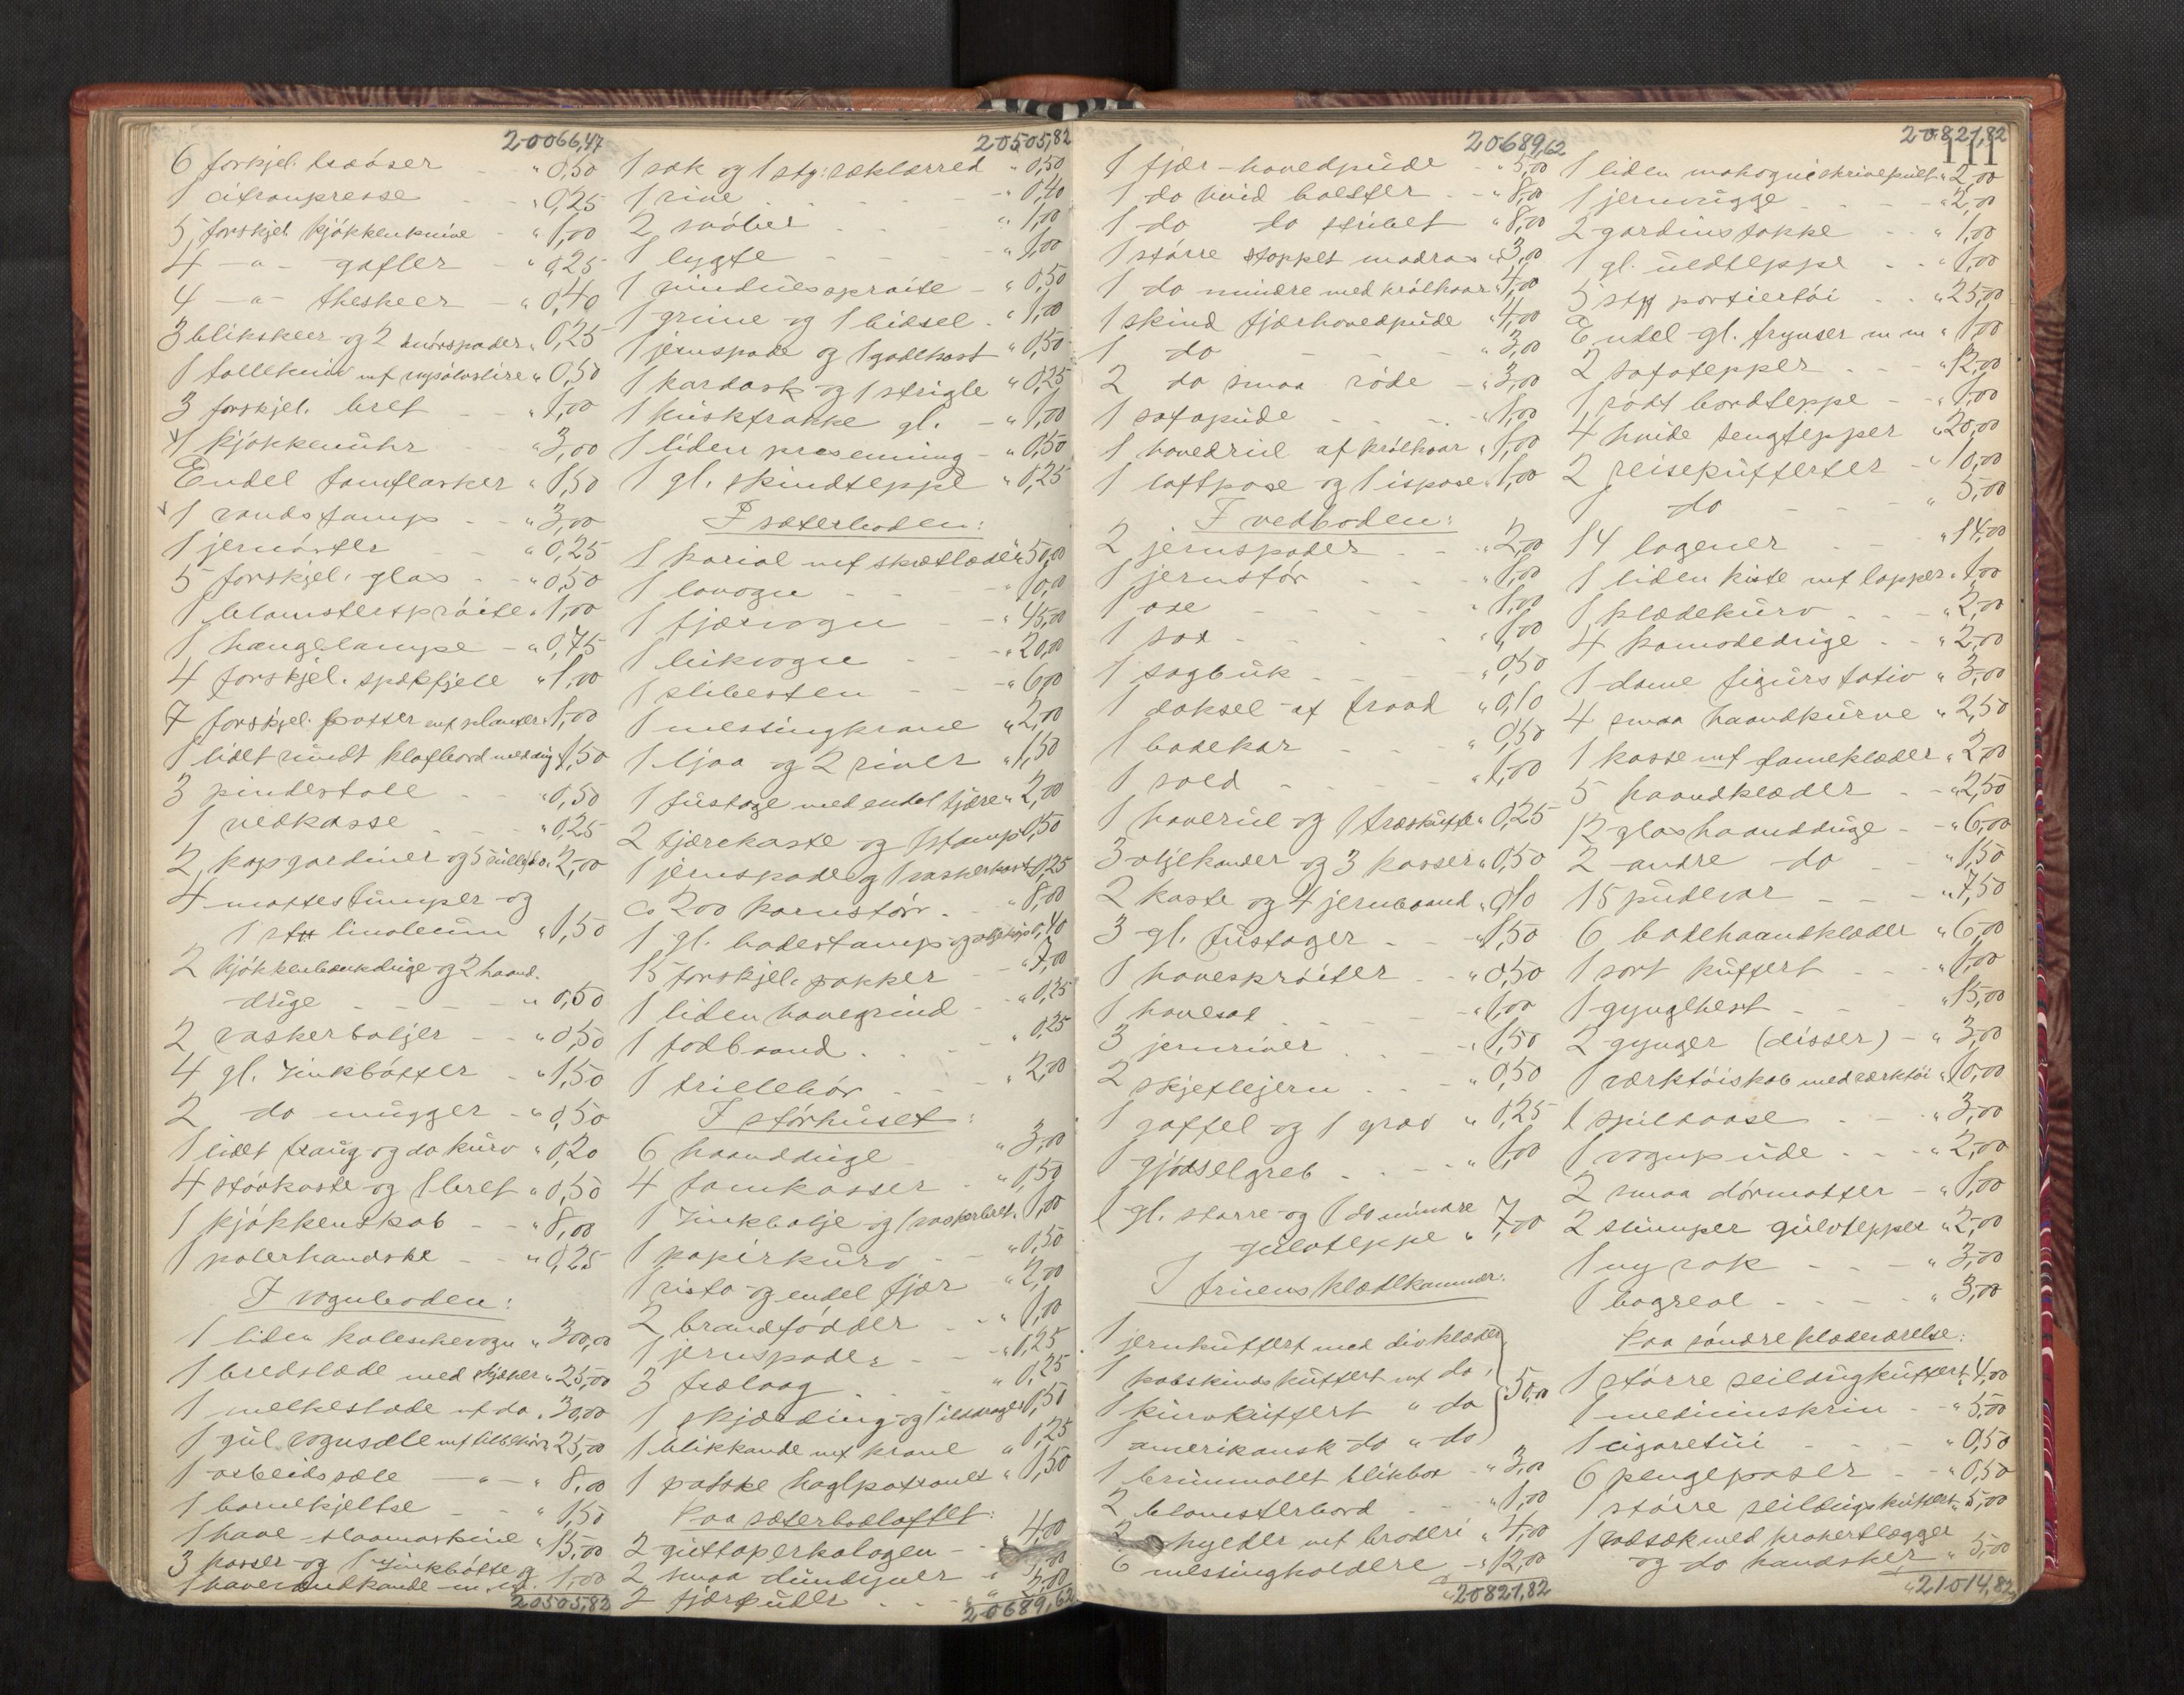 20066,47
6 forskjel. træøser - " 0,50
1 citronpresse - - " 0,25
5 forskjel. kjøkkenknive " 1,00
4 -"- gafler - " 0,25
4 -"- theskeer - " 0,40
3 blikskeer og 2 smørspader " 0,25
1 follekniv mf nysølvslire " 0,50
3 forskjel. bret - - " 1,00
1 kjøkkenuhr - " 3,00
Endel tomflasker " 1,50
1 vandstamp - - " 3,00
1 jernøster - - " 0,25
5 forskjel. glas - - " 0,50
1 blomstersprøite " 1,00
1 hængelampe - " 0,75
4 forskjel. spækfjele " 1,00
7 forskjel. potter mf planter " 1,00
1 lidet rundt klafbord med dug 1,50
3 pindestole - - " 0,50
1 vedkasse - - - " 0,25
2 kapgardiner og 5 rullegdo. " 2,00
4 mattestumper og
1 stk linoleum " 1,50
2 kjøkkenbænkduge og 2 haand-
duge - - - - " 0,50
2 vaskerbaljer - - " 0,50
4 gl. zinkbøtter - " 1,50
2 do mugger - " 0,50
1 lidet traug og do kurv " 0,20
4 støvkoste og 1 bret " 0,50
1 kjøkkenskab - - " 8,00
1 polerhandske - - " 0,25
I vognboden:
1 liden kaleschevogn " 300,00
1 bredslæde med skjæker " 25,00
1 melkeslæde mf do " 30,00
1 gul vognsæle mf tilbehør 25,00
1 arbeidssæle -"- " 8,00
1 barnekjelke - - " 1,50
1 have-slaamaskine " 15,00
3 kasser og 1 zinkbøtte og
1 havevandkande " 1,00
20505,82
20505,82
1 sæk og 1 stg: sæklærred " 0,50
1 rive - - - - " 0,40
2 snøber - - - " 1,00
1 lygte - - - " 1,00
1 vinduesprøite - " 0,50
1 grime og 1 bidsel - " 1,00
1 jernspade og 1 gadekost " 0,50
1 kardask og 1 strigle " 0,25
1 kuskfrakke gl. - " 1,00
1 liden presenning - " 0,50
1 gl. skindteppe " 0,25
I sæterboden:
1 kariol mf skætlæder 50,00
1 lavogn - - " 10,00
1 fjærvogn - - " 45,00
1 likvogn - - " 20,00
1 slibesten - - " 6,00
1 messingkrane " 2,00
1 ljaa og 2 river " 1,50
1 fustage med endel tjære " 2,00
2 tjærekoste og 1 stamp 0,50
1 jernspade og 1 vaskerkost 0,25
Ca 200 kornstør - " 8,00
1 gl. badestamp 1,40
15 forskjel. pakker - " 7,00
1 liden havegrind - " 0,25
1 fodbaand - - - " 0,25
1 trillebør - - " 2,00
I størhuset:
6 haandduge - " 3,00
4 tomkasser - " 0,50
1 zinkbalje og 1 vaskebret " 1,00
1 papirkurv - - " 0,50
1 rista og endel fjær " 2,00
2 brandfødder - - " 1,00
1 jernspader - - " 0,25
3 trælaag - - - " 0,25
1 skjærding og 1 ildrager 0,50
1 blikkande mf krane " 0,25
1 pakke haglpatroner " 1,50
Paa sæterbodloftet:
2 guttaperkalagen - - 4,00
2 smaa dundyner " 1,00
2 fjærpuder - - " 2,00
20689,62
20689,62
1 fjær-hovedpude " 5,00
1 do hvid bolster - " 8,00
1 do do stribet " 8,00
1 større stoppet madras " 3,00
1 do mindre med krølhaar " 4,00
1 skind fjærhovedpude " 4,00
1 do - - - " 3,00
2 do smaa røde - " 3,00
1 sofapude - - - " 1,00
1 hovedrul af krølhaar " 1,00
1 luftpose og 1 ispose " 1,00
I vedboden:
2 jernspader - - " 2,00
1 jernstør - - - " 1,00
1 øxe - - - - " 1,00
1 sax - - - - " 1,00
1 sagbuk - - - " 0,50
1 doksel af traad " 0,10
1 badekar - - - " 0,50
1 sold - - - " 1,00
1 haverul og 1 træskuffe " 0,25
3 oljekander og 3 kasser " 0,50
2 koste og 4 jernbaand " 0,10
3 gl. fustager - - " 1,50
1 havesprøiter - - " 0,50
1 havesax - - - " 1,00
3 jernriver - - - " 1,50
2 skjeftejern - - " 0,50
1 gaffel og 1 grev " 0,25
1 gjødselgreb - - - " 1,00
1 gl. større og 1 do mindre
gulvteppe " 7,00
I fruens klædekammer:
1 jernkuffert med div klæder
1 kobskinds kuffert mf do
1 kurvkuffert " do " 50,00
1 amerikansk do " do
1 brunmalet blikbox " 3,00
2 blomsterbord - - " 1,00
2 hylder mf broderi " 4,00
6 messingholdere " 12,00
20821,82
20821,82
111
1 liden mahogniskrivepult " 2,00
1 jernvugge - - " 2,00
2 gardinstokke - - " 1,00
1 gl. uldteppe - - " 1,00
5 stk portiertøi - - " 25,00
Endel gl. frynser m m " 1,00
2 sofatepper - - " 12,00
1 rødt bordteppe - - " 1,00
4 hvide sengtepper " 20,00
2 reisekufferter - " 10,00
1 do - - - - " 5,00
14 lagener - - " 14,00
1 liden kiste mf lapper " 1,00
1 klædekurv - - " 2,00
4 komodeduge - - " 2,00
1 dame figurstativ " 3,00
4 smaa haandkurve " 2,50
1 kasse mf dameklæder " 2,00
5 haandklæder - - " 2,50
12 glashaandduge - " 6,00
2 andre do - " 1,50
15 pudevar - - - " 7,50
6 badehaandklæder " 6,00
1 sort kuffert - - " 1,00
1 gynghest - - " 15,00
2 gynger (disser) - " 3,00
1 værktøiskab med værktøi " 10,00
1 spildaase - - " 3,00
1 vognpude - - - " 2,00
2 smaa dørmatter - " 1,00
2 stumper gulvtepper " 2,00
1 ny sæk - - - " 3,00
1 bogreol - - - " 3,00
Paa søndre klædeværelse:
1 større seildugkuffert " 4,00
1 medicinskrin - - " 5,00
1 cigaretui - - " 0,50
6 pengeposer - - " 0,50
1 større seildugskuffert " 5,00
1 vadsæk med
og do handsker " 5,00
21014,82